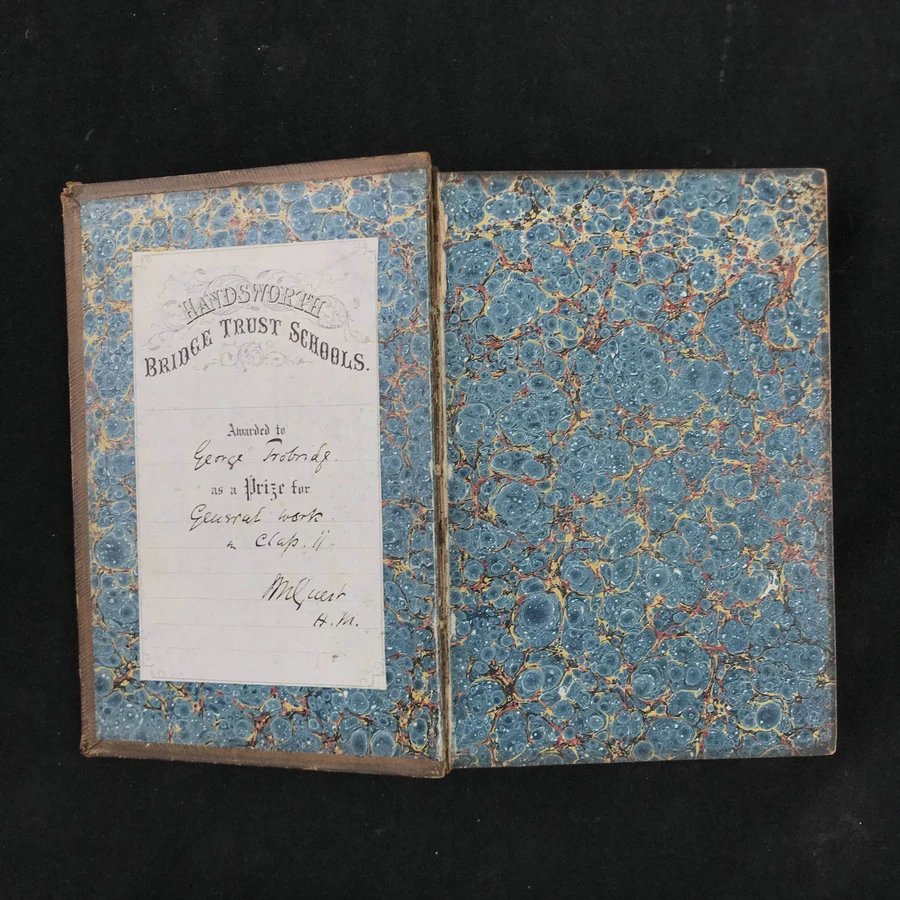 HANDSWORTH
BRIDGE TRUST SCHOOLS.
Awarded to
George Trobridge.
as a Prize for
General work
in Class II
H. M.